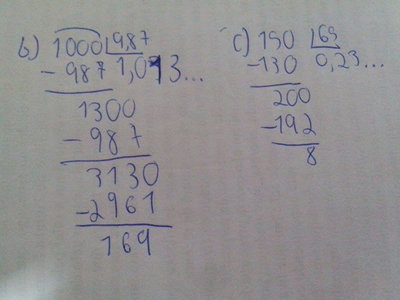 b) 1000 9,87
-987 1,013...
1300
-987
3130
-2961
169
c) 150 65
-130 0,23...
200
-192
8